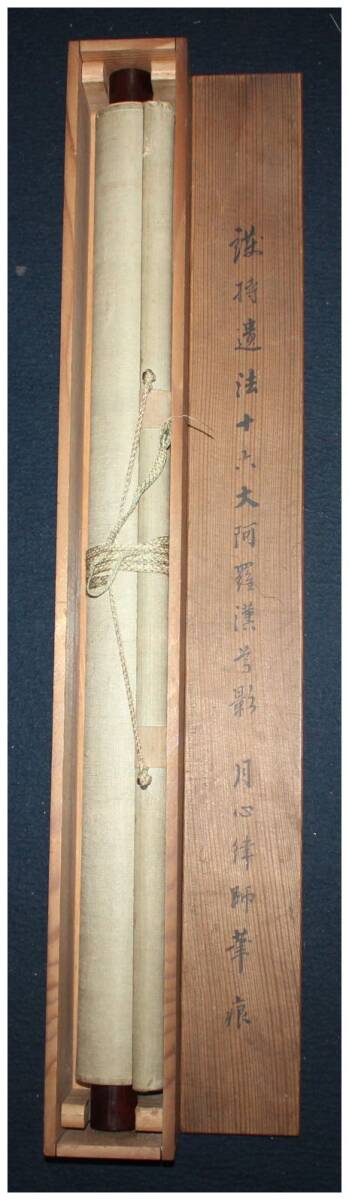 護持遺法十六大阿羅漢尊影 月心律師筆痕